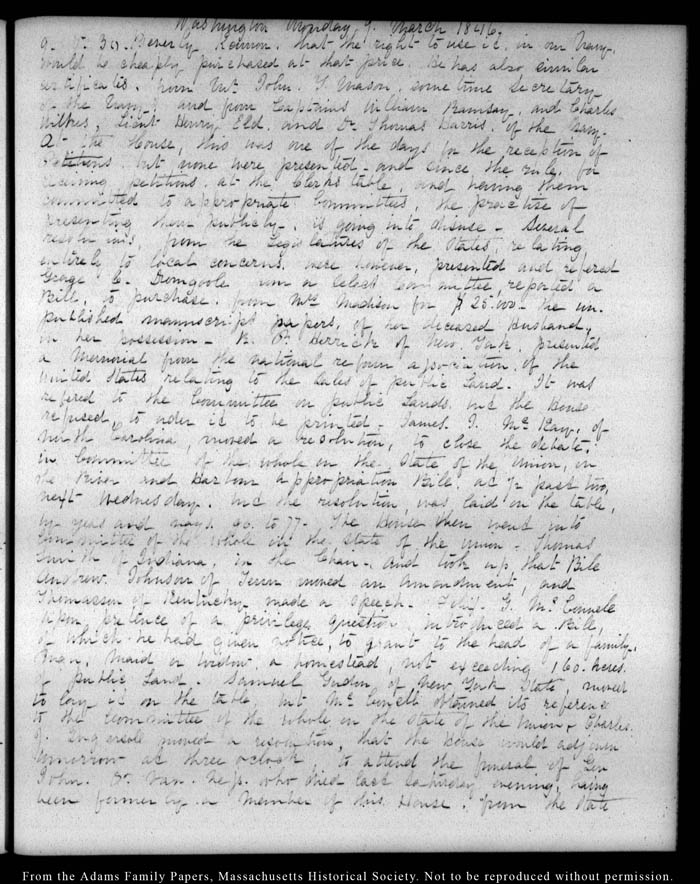 Washington Monday 9. March 1846.
9. V. 30. Beverly Kennon. that the right to use it, in our Navy,
would be cheaply purchased at that price. He has also similar
certificates. from Mr. John. Y. Mason, sometime Secretary
of the Navy, and from Captains William Ramsay, and Charles
Wilkes, Lieut Henry Eld. and Dr. Thomas Harris, of the Navy.
At the House, this was one of the days for the reception of
Petitions but none were presented, and since the rule, for
receiving petitions, at the Clerk's table, and having them
committed to appropriate Committees, the practise of
presenting them publicly, is going into disuse - Several
resolutions, from the Legislatures of the States, relating
entirely to local concerns, were however, presented and refered
George C. Dromgoole from a select Committee, reported a
Bill, to purchase from Mrs Madison for $25,000 - the un-
published manuscript papers, of her deceased Husband,
in her possession - R. P. Herrick of New York, presented
a Memorial from the national reform association, of the
United States relating to the sales of public Land. It was
refered to the Committee on public Lands and the House
refused, to order it to be printed - James. I. McKay, of
North Carolina, moved a resolution, to close the debate,
in Committee of the whole on the State of the Union, on
the River and Harbour appropriation Bill, at ½ past two,
next Wednesday. and the resolution, was laid on the table,
by yeas and nays. 96. to 77 - The House then went into
Committee of the whole on the state of the union - Thomas
Smith of Indiana, in the Chair - and took up, that Bill
Andrew. Johnson of Tenn moved an amendment, and
Thomasson of Kentucky made a speech - G. McConnell
upon pretence of a privilege question, introduced a Bill,
of which he had given notice, to grant to the head of a family,
man, maid or widow, a homestead, not exceeding 160. Acres.
of public Land. Samuel Gordon, of New York State, moved
to lay it on the table, but McConnell obtained its reference
to the Committee of the whole on the state of the Union, Charles.
J. Ingersoll moved a resolution, that the House would adjourn
tomorrow at three oclock, to attend the funeral of Gen
John. P. Van. Ness. who died last Saturday evening, having
been formerly a Member of this House, from the State
From the Adams Family Papers, Massachusetts Historical Society. Not to be reproduced without permission.